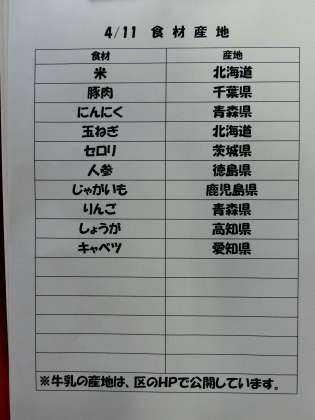 4/11 食材産地
食材 産地
米 北海道
豚肉 千葉県
にんにく 青森県
玉ねぎ 北海道
セロリ 茨城県
人参 徳島県
じゃがいも 鹿児島県
りんご 青森県
しょうが 高知県
キャベツ 愛知県
※牛乳の産地は、区のHPで公開しています。